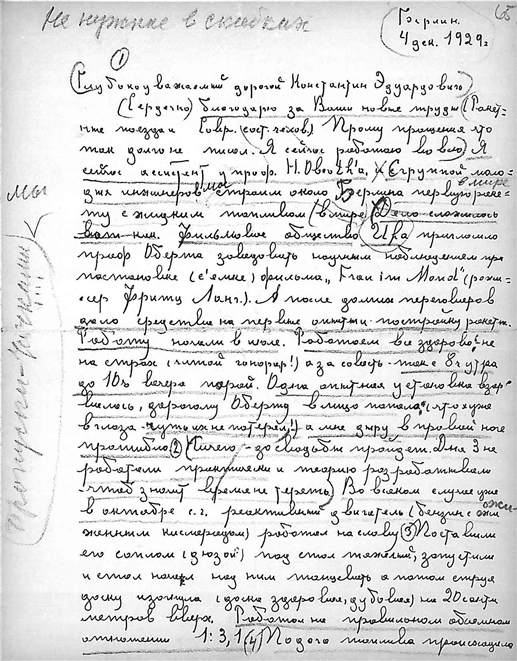 Не нужное в скобках
65
Берлин.
4 дек. 1929 г
1
(Глубокоуважаемый дорогой Константин Эдуардович)
(Сердечно) благодарю за Ваши новые труды (Ракет-
ные поезда и Совр. сост. Прошу прощения что
так долго не писал. Я сейчас работаю во всю) Я
сейчас ассистент у проф. H. Obertha, С группой моло-
дых инженеров мы строим около Берлина первую раке-
в мире
ту с жидким топливом (в мире) Дело сложилось
так Фильмовое общество Ufa пригласило
проф Оберта заведовать научным наблюдением при
постановке фильма „Frau im Mond" (режис-
сер Фритц Ланг). А после долгих переговоров
дало средства на первые опыты и постройку ракеты.
Работу начали в июле. Работаем все здорово, не
на страх гонорар!) а за совесть - так с 8 ч утра
до 10 ч вечера порой. Одна опытная установка взор-
валась, дорогому Оберту в лицо попало (что хуже
в глаза - чуть их не потерял!) а мне дыру в правой ноге
прошибло (2) (Ничего - до свадьбы пройдет. Дня 3 не
работали практически и теорию разрабатывали
- чтоб значит время не терять) Во всяком случае уже
в октябре с.г. реактивный двигатель (бензин с ожи-
женным кислородом) работал на славу (3) Поставили
его соплом (дюзой) под стол тяжелый, запустили
и стол начал над ним танцевать а потом струя
доску изогнула (доска здоровая, дубовая) на 20 санти
метров вверх. Работал на правильном объемном
отношении 1:3,1 (4) Подача топлива происходила
мы
Пропуски - точками
!!!!